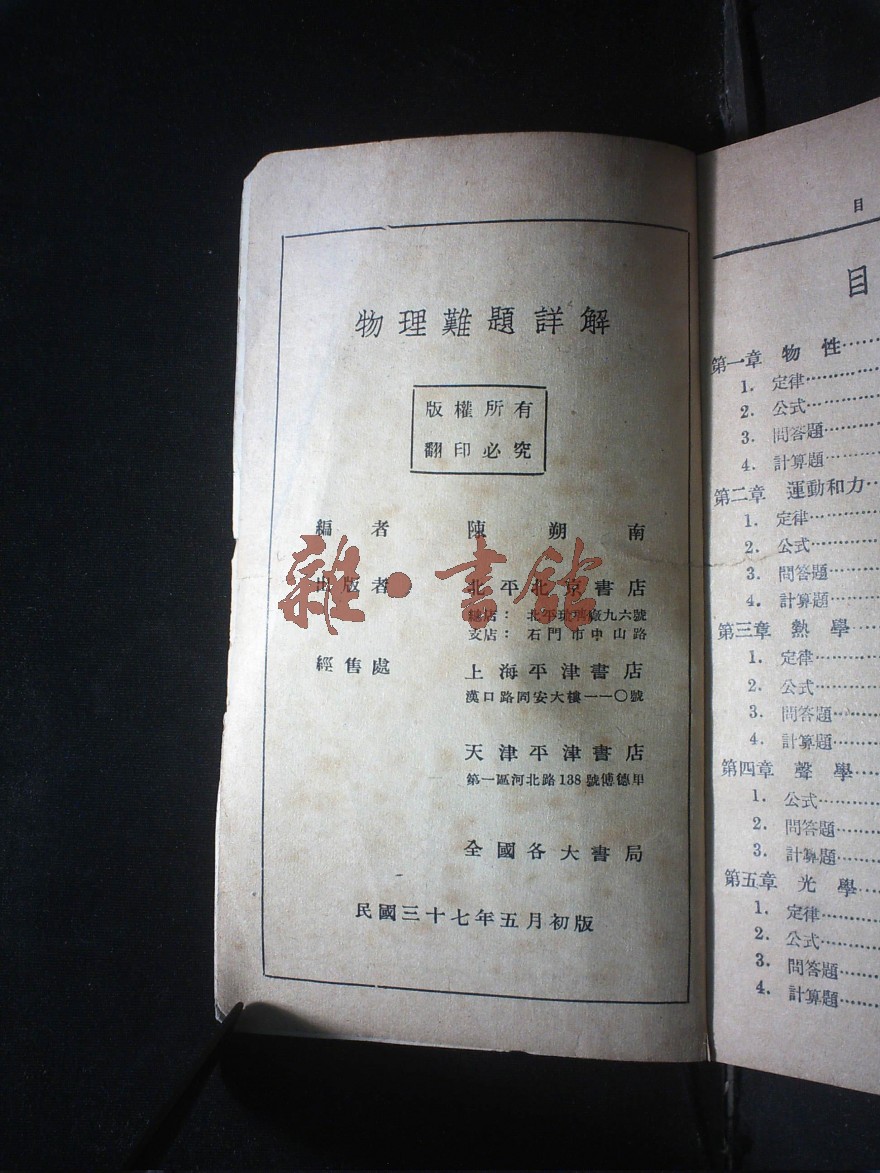 物理難題詳解
版權所有
翻印必究
編者 陳朔南
出版者 北平北京書店
總店：北平琉璃廠九六號
支店：石門市中山路
經售處 上海平津書店
漢口路同安大樓一一〇號
天津平津書店
第一區河北路138號傅德里
全國各大書局
民國三十七年五月初版
雜·書館
目
目
第一章 物性……
1. 定律……
2. 公式……
3. 問答題……
4. 計算題……
第二章 運動和力……
1. 定律……
2. 公式……
3. 問答題……
4. 計算題……
第三章 熱學……
1. 定律……
2. 公式……
3. 問答題……
4. 計算題……
第四章 聲學……
1. 公式……
2. 問答題……
3. 計算題……
第五章 光學……
1. 定律……
2. 公式……
3. 問答題……
4. 計算題……